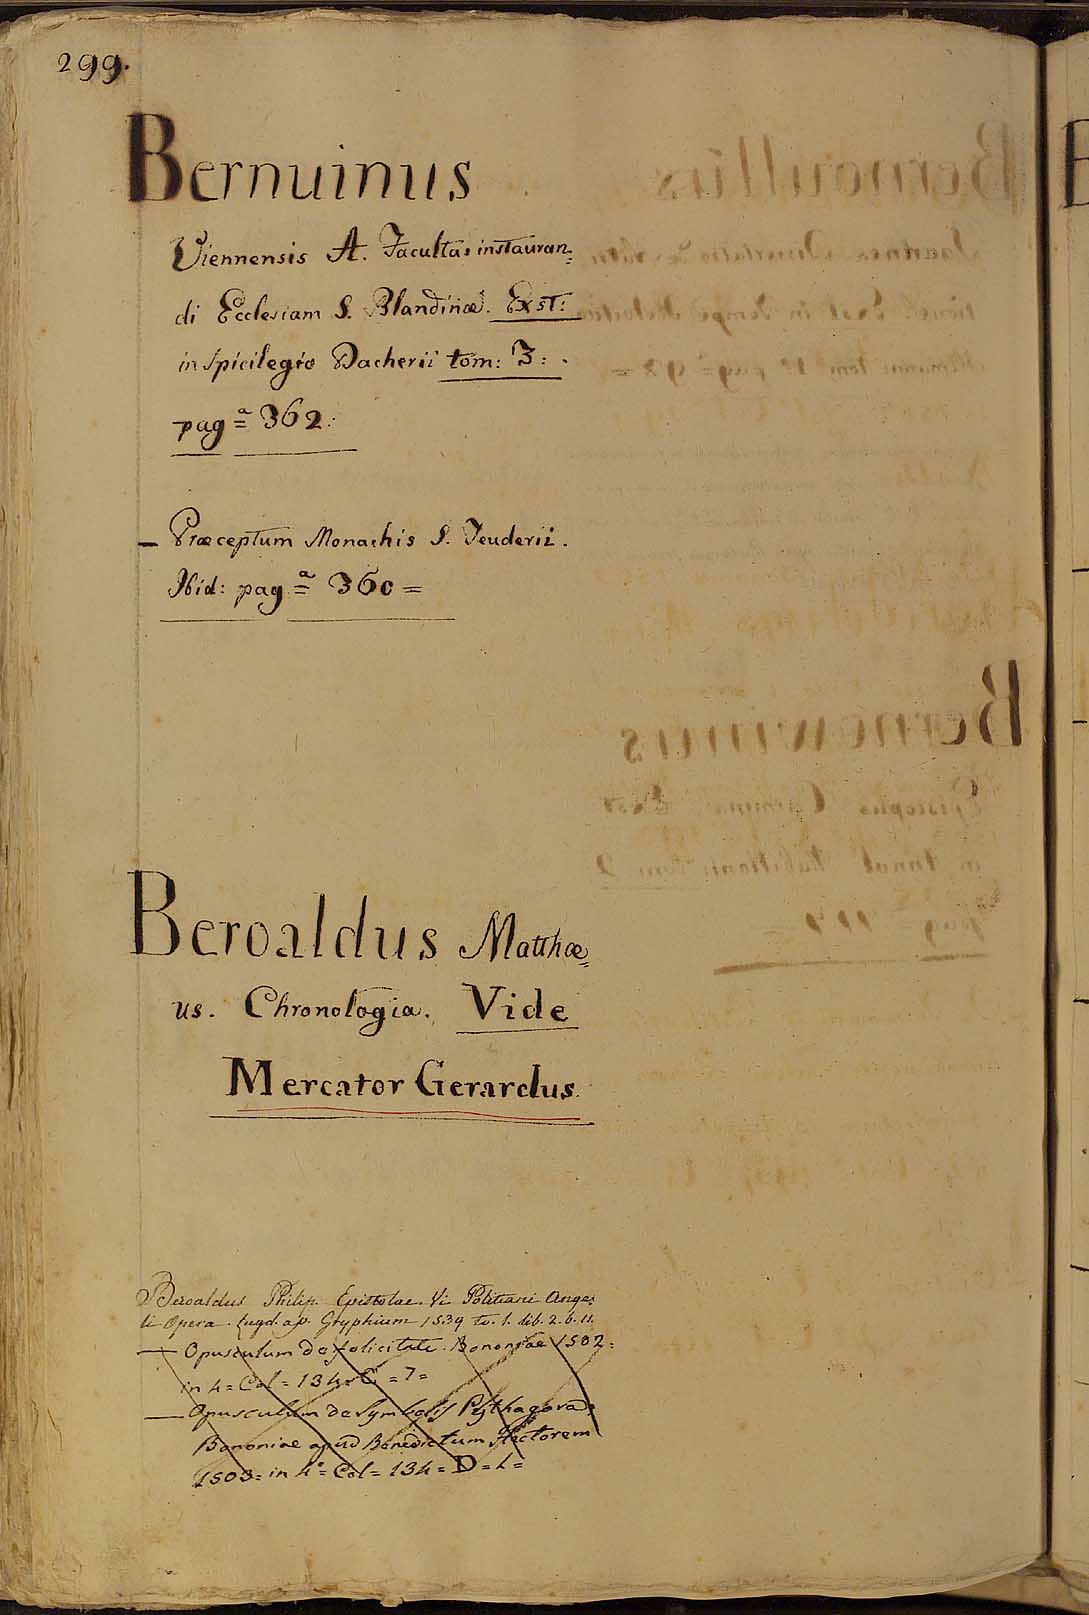 299.
Bernuinus
Viennensis A. Facultas instauran=
di Ecclesiam S. Blandinæ. Exst:
in Spicilegio Dacherii tom: 3: .
pag.ª 362.
— Præceptum Monachis S. Teuderii.
Ibid: pag.ª 360 =
Beroaldus Matthæ=
us. Chronologia. Vide
Mercator Gerardus.
Beroaldus Philip. Epistolae. Vi Politiani Ange=
li Opera. Lugd. ap. Gryphium 1539 to. 1. lib. 2. 6. 11.
— Opusculum De felicitate. Bononiae 1502=
in 4= Col= 134= C =7=
— Opusculum de Symbolis Pythagorae=
Bononiae apud Benedictum Hectorem
1503= in 4º= Col= 134= D= 4=